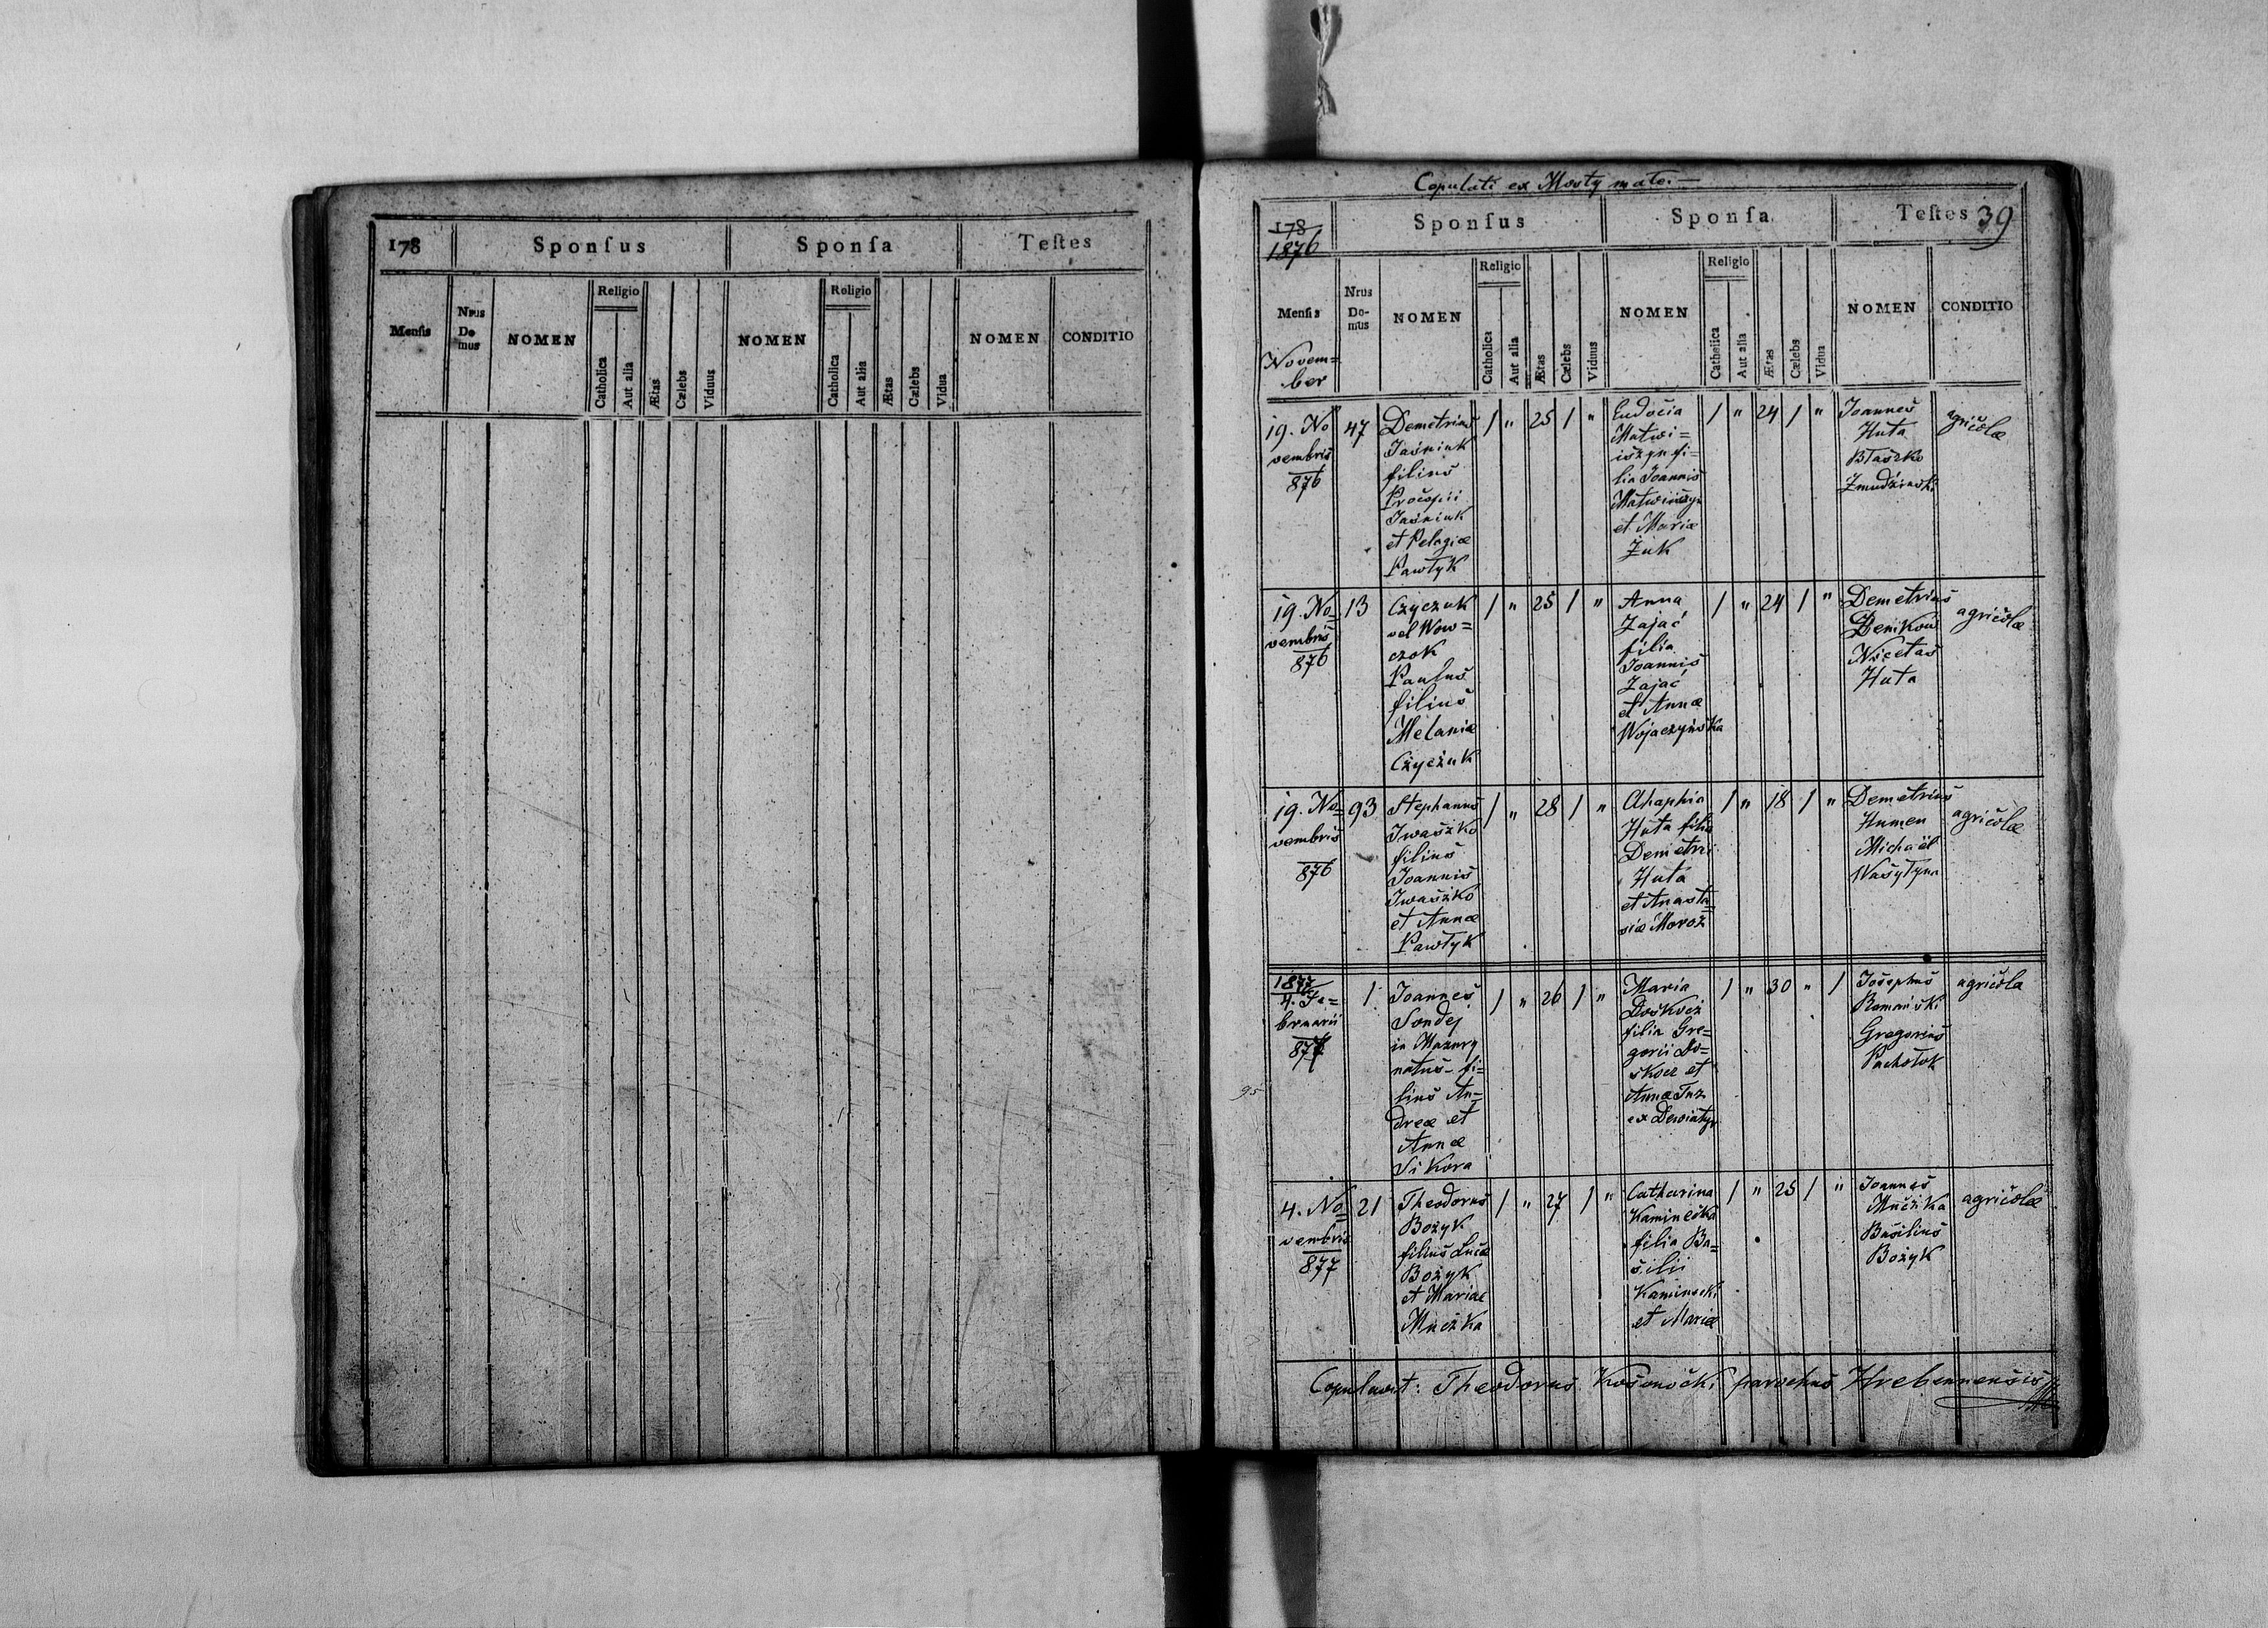 178
Sponſus
Sponſa
Teſtes
Menſis
Nrus
Do
mus
NOMEN
Religio
Catholica
Aut alia
Ætas
Cælebs
Viduus
NOMEN
Roligio
Catholica
Aut alia
Ætas
Cælebs
Vidua
NOMEN
CONDITIO
Copulati ex Mosty małe.—
178
1876
Sponſus
Sponſa
Teſtes 39
Menſis
Novem=
ber
Nrus
Do-
mus
NOMEN
Religio
Catholica
Aut alia
Ætas
Cælebs
Viduus
NOMEN
Religio
Catholica
Aut alia
Ætas
Cælebs
Vidua
NOMEN
CONDITIO
19. No
vembris
876
47
Demetrius
Jaśniuk
filius
Procopii
Jaśniuk
et Pelagiæ
Pawłyk
/ " 25 / "
Eudocia
Matwi=
iszyn fi=
lia Joannis
Matwiiszyn
et Mariæ
Żuk
/ " 24 / "
Joannes
Huta
Błaszko
Żmudziński
agricolæ
19. No=
vembris
876
13
Czyczuk
vel Wow=
czok
Paulus
filius
Melaniæ
Czyczuk
/ " 25 / "
Anna
Zając
filia
Joannis
Zając
et Annæ
Wojaczyńska
/ " 24 / "
Demetrius
Demków
Nicetas
Huta
agricolæ
19. No=
vembris
876
93
Stephanus
Iwaszko
filius
Joannis
Iwaszko
et Annæ
Pawłyk
/ " 28 / "
Ahaphia
Huta filia
Demetri
Huta
et Anasta=
siæ Moroz
/ " 18 / "
Demetrius
Humen
Michaël
Wasyłyna
agricolæ
1877
4. Fe=
bruarii
877
1
Joannes
Sondej
in Mazury
natus- fi=
lius An=
dreæ et
Annæ
Sikora
/ " 26 / "
Maria
Doskocz
filia Gre=
gorii Do=
skocz et
Annæ Tuz
ex Dewiatyr
/ " 30 " /
Josephus
Romański
Gregorius
Pachołok
agricola
95
4. No=
vembris
877
21
Theodorus
Bożyk
filius Lucæ
Bożyk
et Mariæ
Muczka
/ " 27 / "
Catharina
Kaminecka
filia Ba=
silii
Kaminecki
et Mariæ
/ " 25 / "
Joannes
Muczka
Basilius
Bożyk
agricolæ
Copulavit: Theodorus Kosonocki parochus Hrebennensis